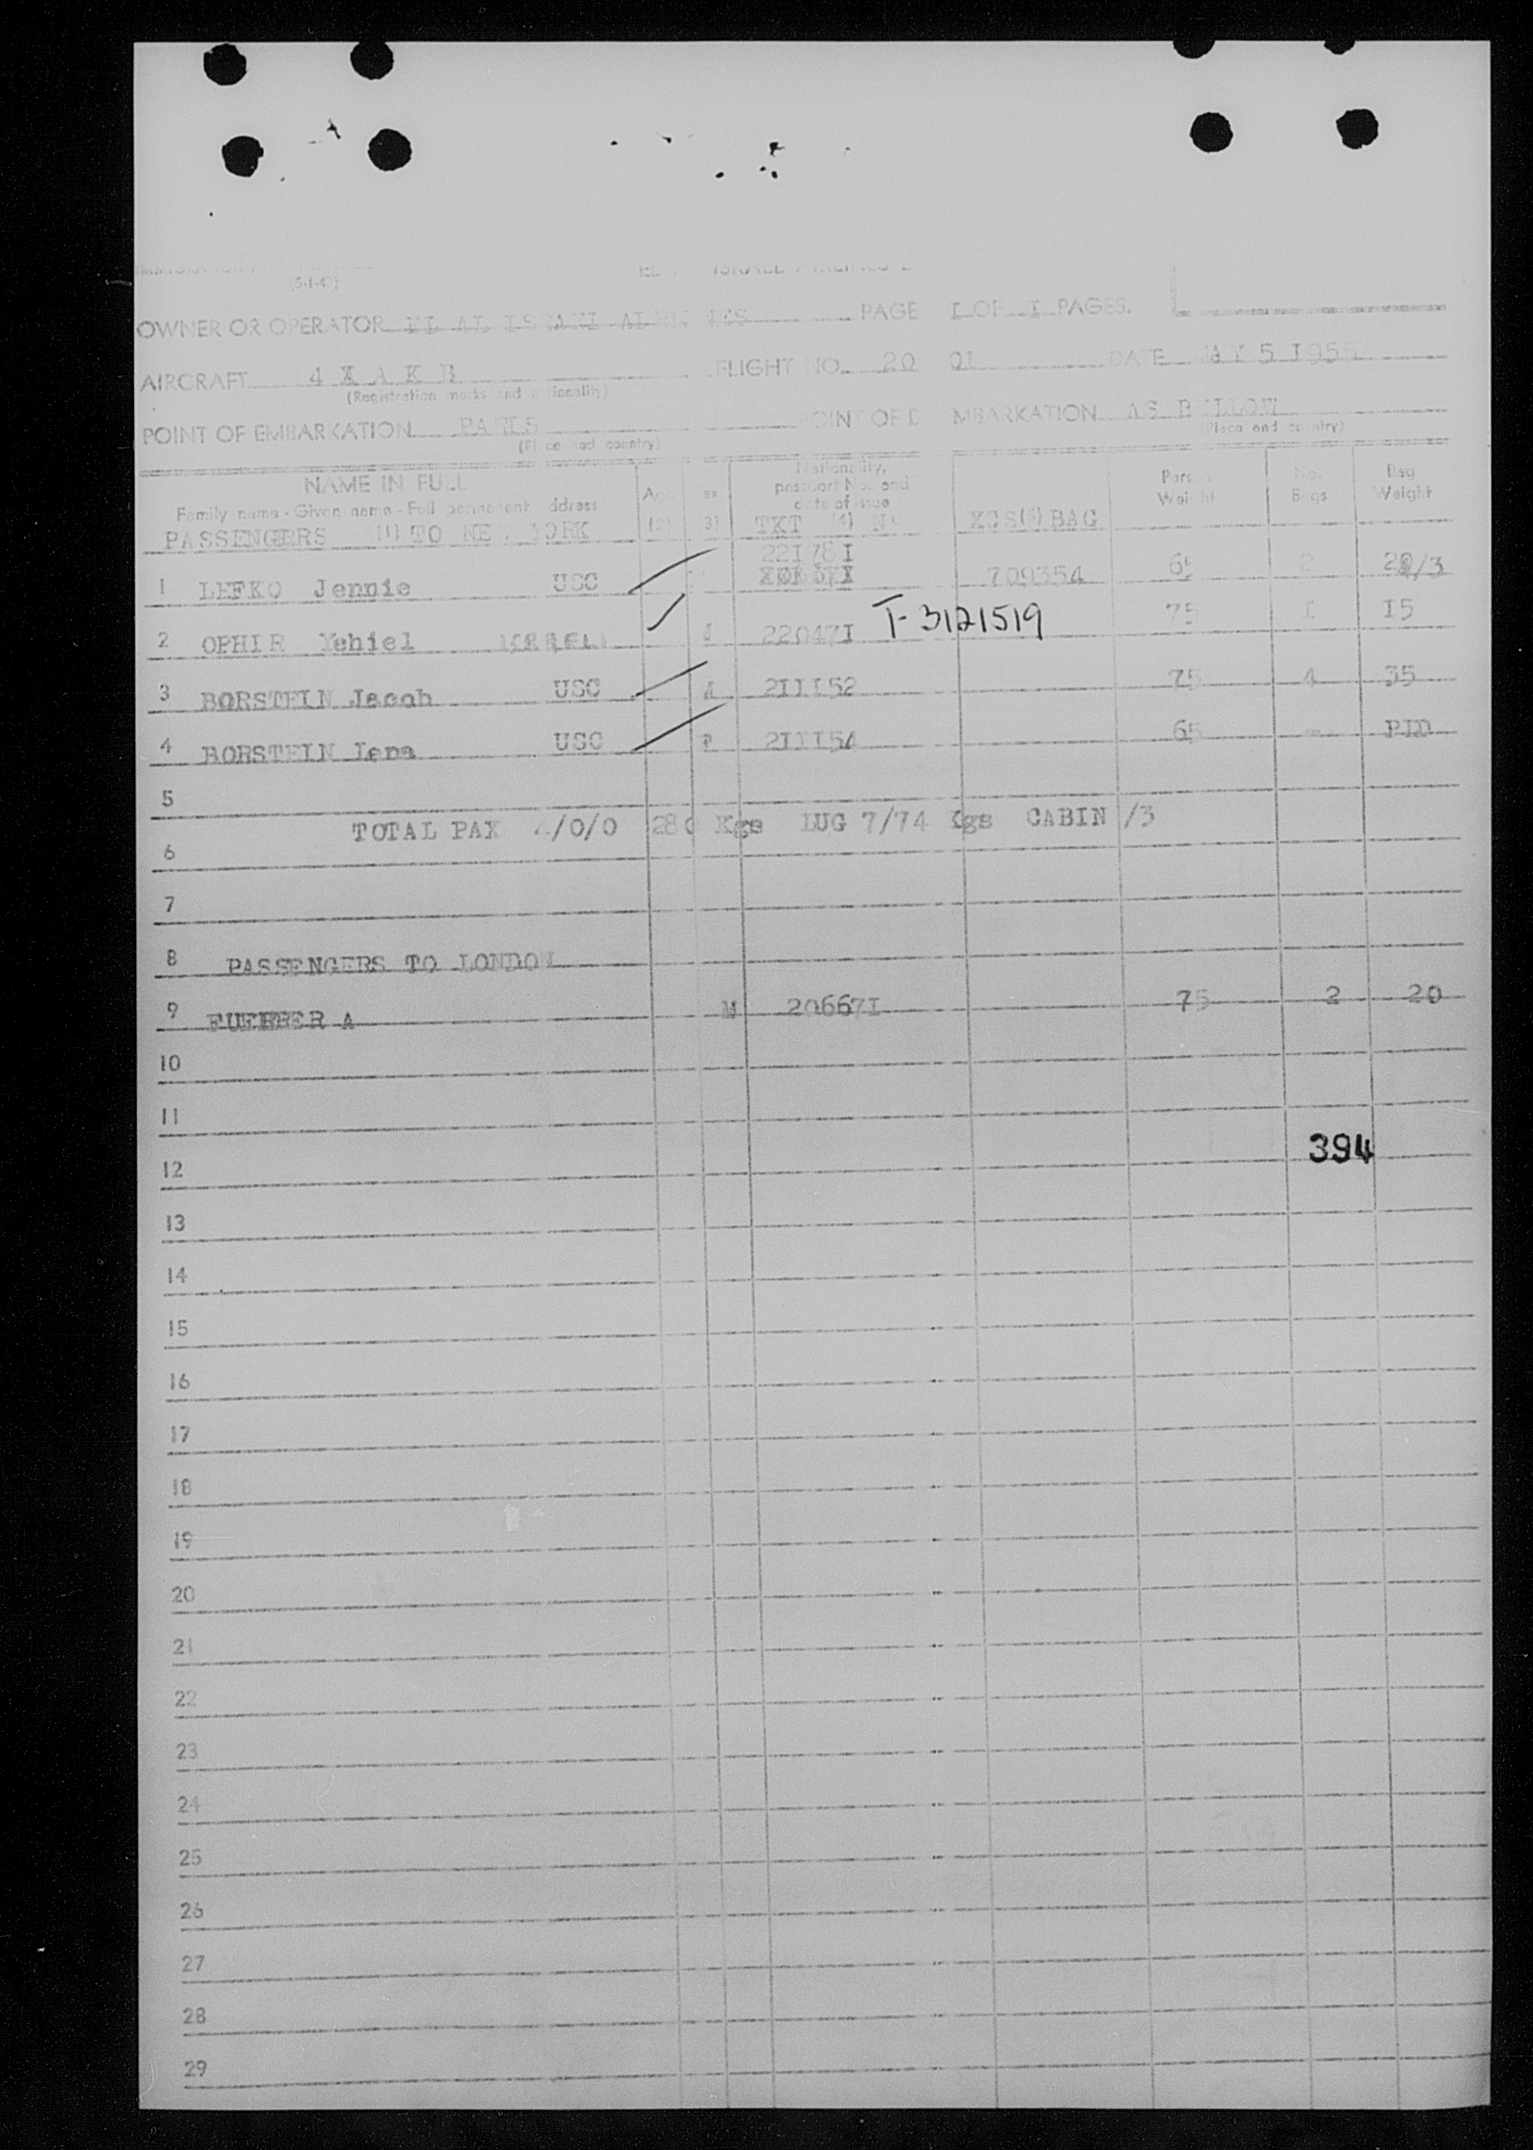 (5-1-4
OWNER OR OPERATOR EL AL ISRAEL AIRLINES PAGE I OF I PAGES.
AIRCRAFT 4 X A K B FLIGHT NO. 20 01 DATE MAY 5 1955
(Registration marks and nationality)
POINT OF EMBARKATION PARIS POINT OF DISEMBARKATION AS BELLOW
(Place and country) (Place and country)
NAME IN FULL Age Sex Nationality, passport No. and date of issue Person Weight No. Bags Bag Weight
Family name - Given name - Full permanent address
PASSENGERS (1) TO NEW YORK (2) (3) TKT (4) Nº XCS(5)BAG
22I78I
1 LEFKO Jennie USC 709354 65 2 /3
2 OPHIR Yehiel 22047I T-3121519 75 I I5
3 BORSTEIN Jacob USC 2III52 75 4 35
4 BORSTEIN Lena USC F 2III54 65 - PID
5
TOTAL PAX 4/0/0 280 Kgs LUG 7/74 Kgs CABIN /3
6
7
8 PASSENGERS TO LONDON
9 FUERRER A M 20667I 75 2 20
10
11
394
12
13
14
15
16
17
18
19
20
21
22
23
24
25
26
27
28
29